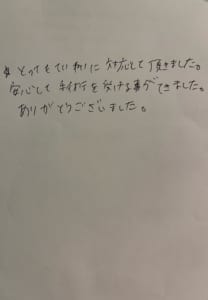 とてもていねいに対応して頂きました。
安心して手術を受ける事ができました。
ありがとうございました。